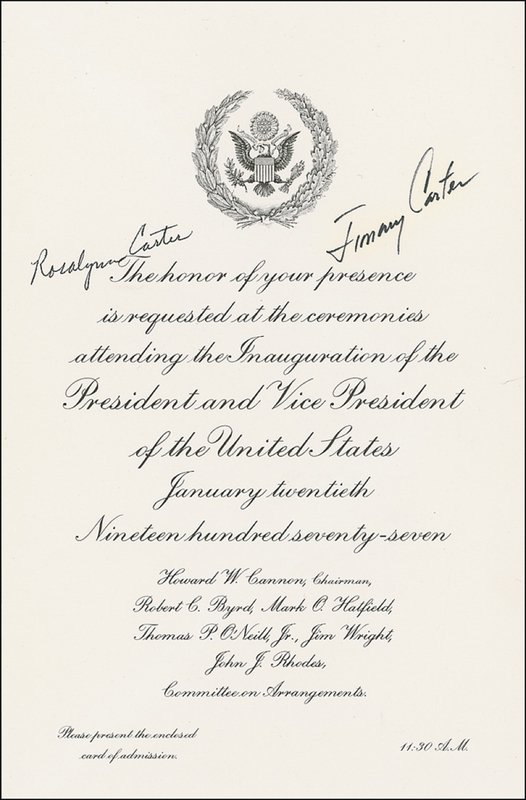 Rosalynn Carter
Jimmy Carter
The honor of your presence
is requested at the ceremonies
attending the Inauguration of the
President and Vice President
of the United States
January twentieth
Nineteen hundred seventy-seven
Howard W. Cannon, Chairman,
Robert C. Byrd, Mark O. Hatfield,
Thomas P. O'Neill, Jr., Jim Wright,
John J. Rhodes,
Committee on Arrangements.
Please present the enclosed
card of admission.
11:30 A.M.